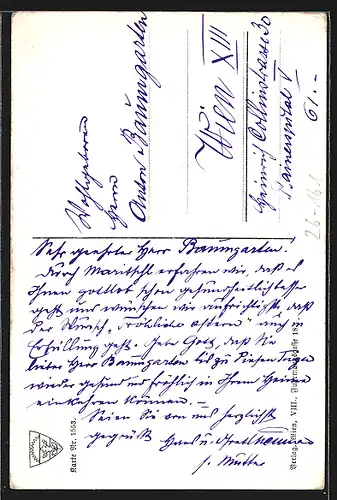 Wohlgeboren
Herrn
Anton Baumgarten
Wien XIII
Heinrich Collinstrasse 30
Rainerspital V
61.-
26-161
Sehr geehrter Herr Baumgarten!
Durch Maritschl erfahren wir, daß es
Ihnen gottlob schon gesundheitlich besser
geht und wünschen wir aufrichtigst, daß
der Wunsch, „Fröhliche Ostern“ auch in
Erfüllung geht. Gebe Gott, daß Sie
lieber Herr Baumgarten bis zu Pfingsten
wieder gesund und fröhlich in Ihrem Heime
einkehren können. –
Seien Sie von uns herzlichst
gegrüßt
Hans u. Gretl
s. Mutter
Karte Nr. 1553.
Verlag: Wien, VIII.,